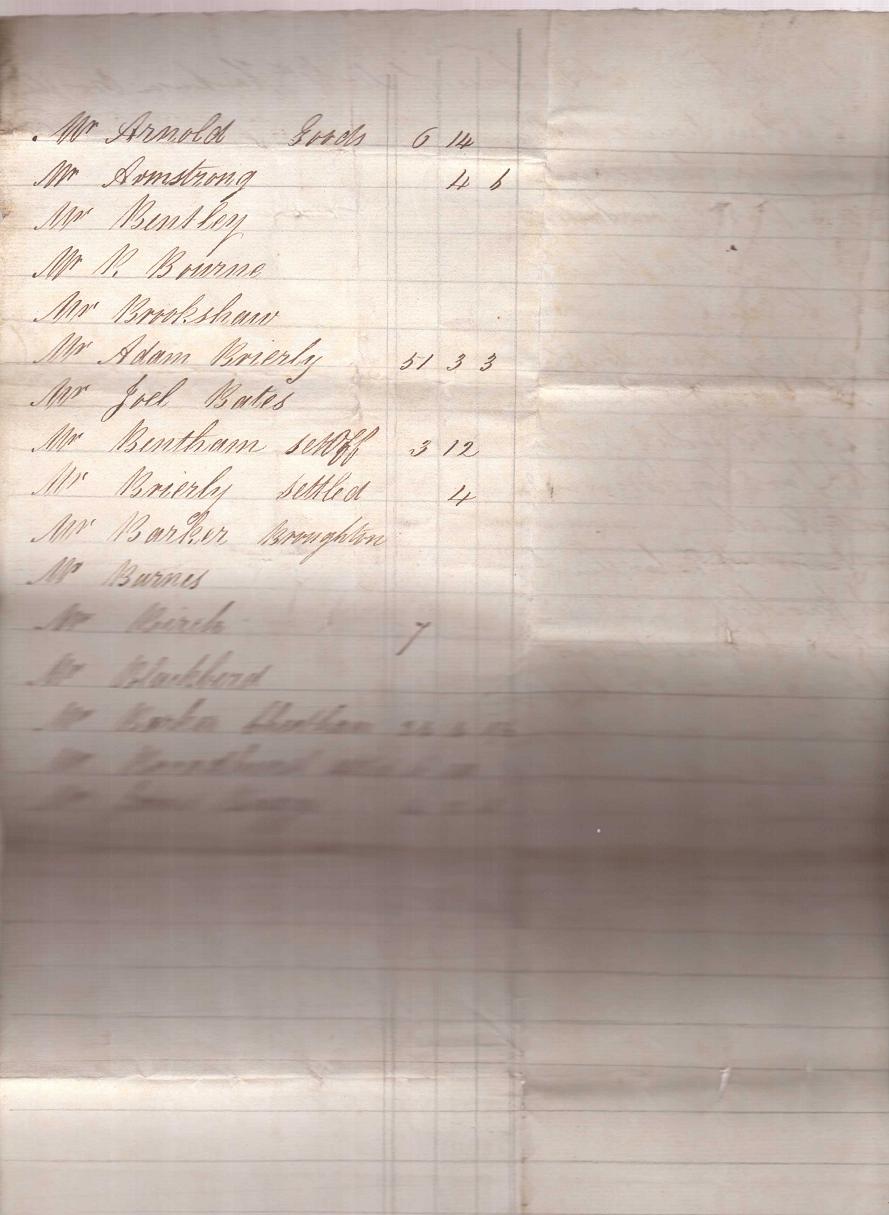 Mr Arnold Goods 6 14
Mr Armstrong 4 6
Mr Bentley
Mr P. Bourne
Mr Brookshaw
Mr Adam Brierly 51 3 3
Mr Joel Bates
Mr Bentham settOff 3 12
Mr Brierly settled 4
Mr Barker Broughton
Mr Barnes
Mr Birch 7
Mr Blackbird
Mr
Mr
Mr